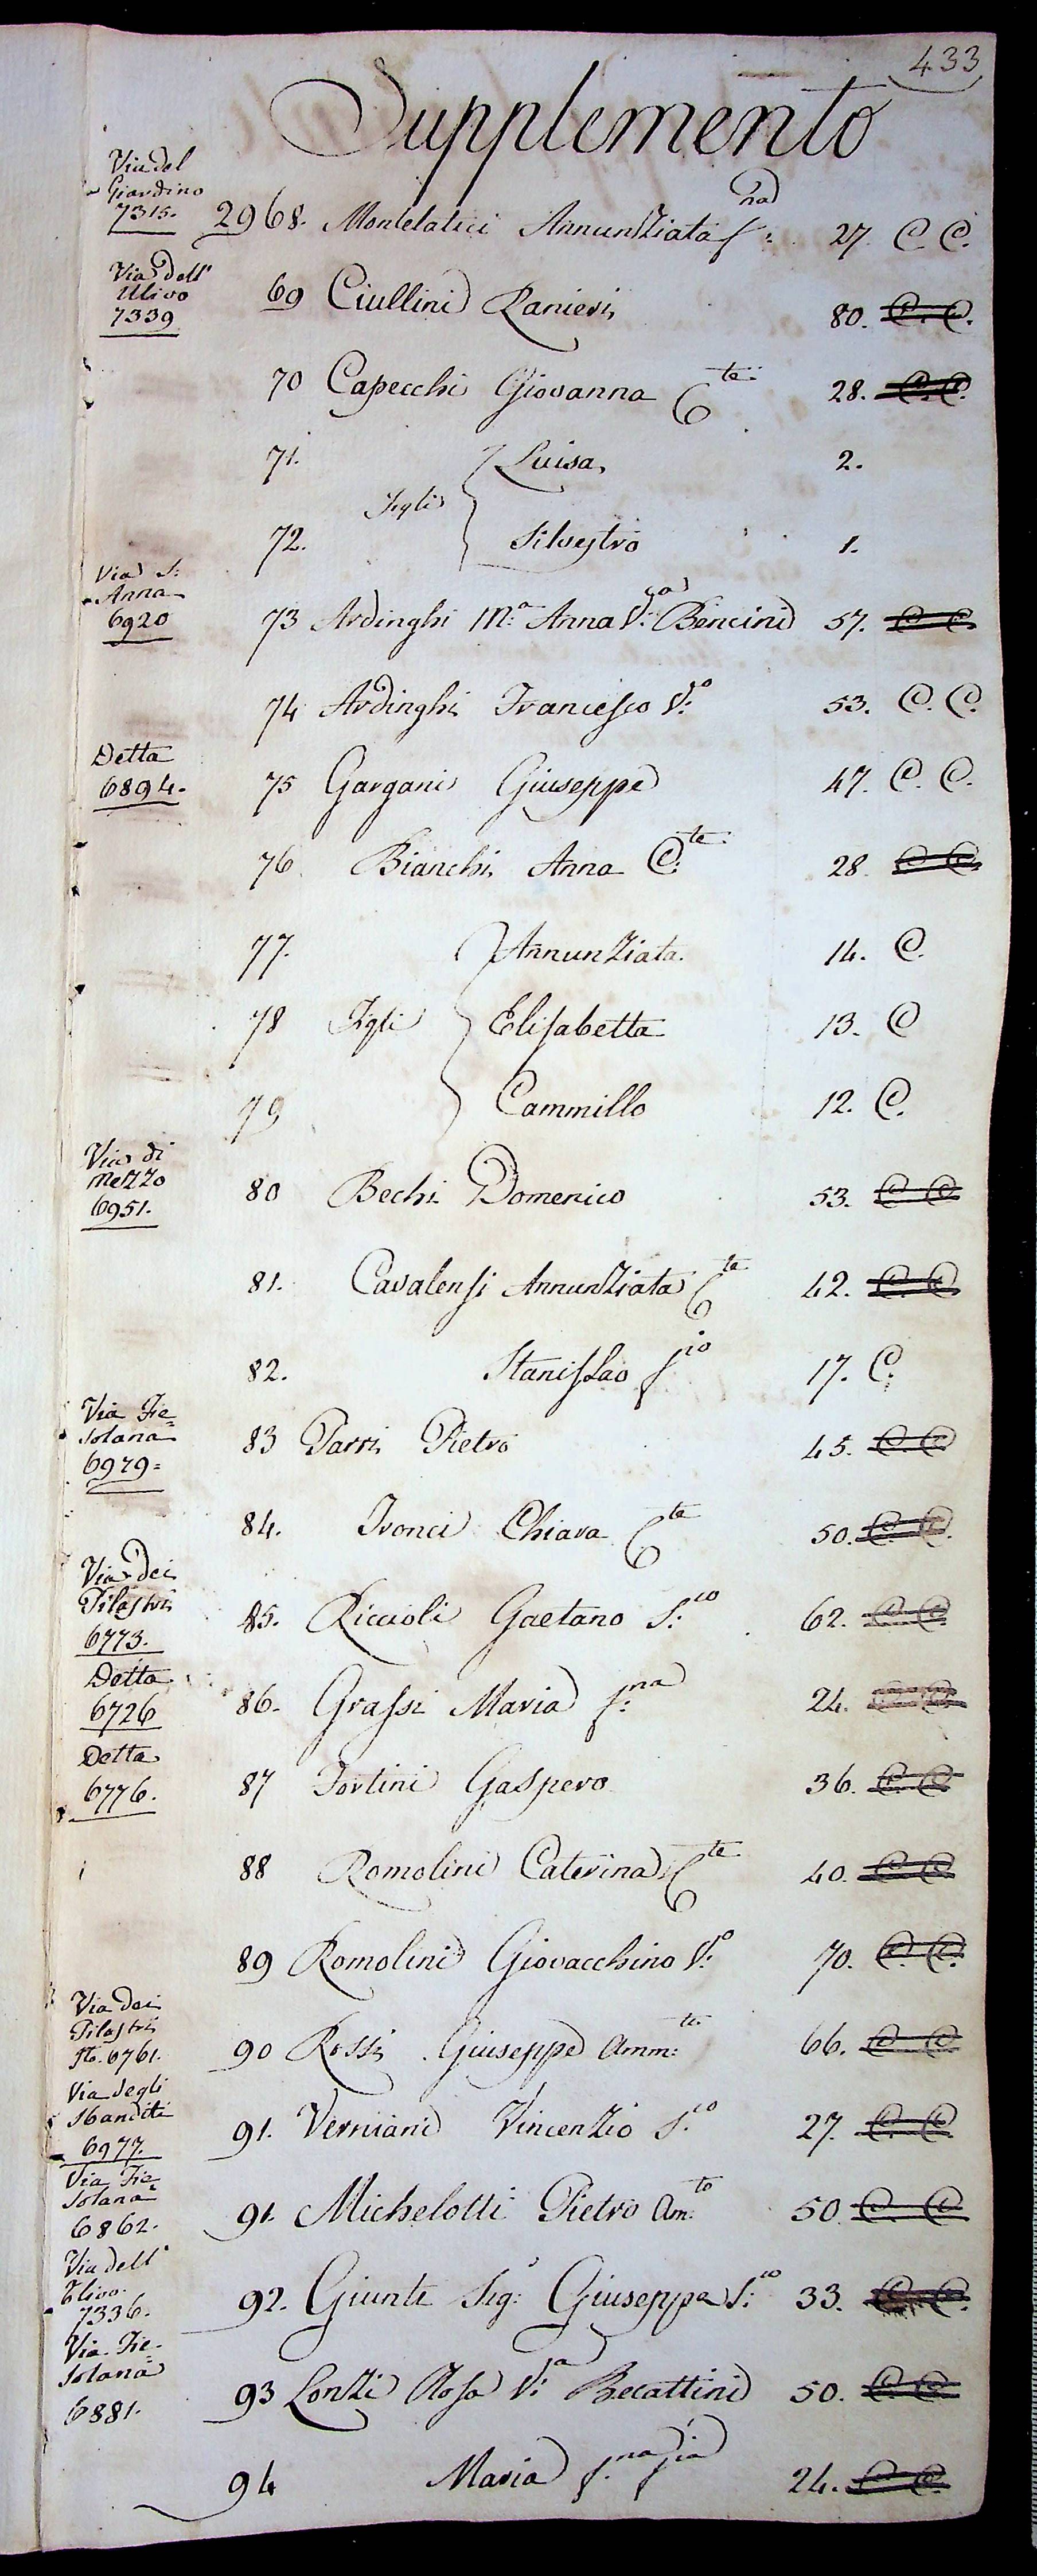 433
Supplemento
Via del
Giardino
7315. 2968. Montelatici Annunziata f:na 27. C. C.
Via dell'
Ulivo
7339 69 Ciullini Ranieri 80. C. C.
70 Capecchi Giovanna Cte 28. C. C.
71. Luisa 2.
Figli
72. Silvestro 1.
Via S:
Anna
6920 73 Ardinghi Ma: Anna V:va Bencini 57. C. C.
74 Ardinghi Francesco V:o 53. C. C.
Detta
6894. 75 Gargani Giuseppe 47. C. C.
76 Bianchi Anna C:te 28. C. C.
77. Annunziata 14. C.
78 Figli Elisabetta 13. C
79 Cammillo 12. C.
Via di
Mezzo
6951. 80 Bechi Domenico 53. C. C.
81. Cavalensi Annunziata Cta 42. C. C
82. Stanislao fio 17. C.
Via Fie=
solana
6979= 83 Parri Pietro 45. C. C
84. Fronci Chiara Cte 50. C. C.
Via dei
Pilastri
6773. 85. Riccioli Gaetano S:co 62. C C
Detta
6726 86. Grassi Maria f:na 24. C C
Detta
6776. 87 Fortini Gaspero 36. C. C
88 Romolini Caterina Cte 40. C C
89 Romolini Giovacchino V:o 70. C. C.
Via dei
Pilastri
No. 6761. 90 Rossi Giuseppe Amm:to 66. C. C
Via degli
Sbanditi
6977. 91. Verniani Vincenzio S:co 27. C. C.
Via Fie=
solana
6862. 91. Michelotti Pietro Am:to 50. C. C.
Via dell'
Ulivo.
7336. 92. Giunti Sig: Giuseppe S:co 33. C. C.
Via Fie=
solana
6881. 93 Lonzi Rosa V:a Becattini 50. C. C.
94 Maria f:na fia 24. C. C.